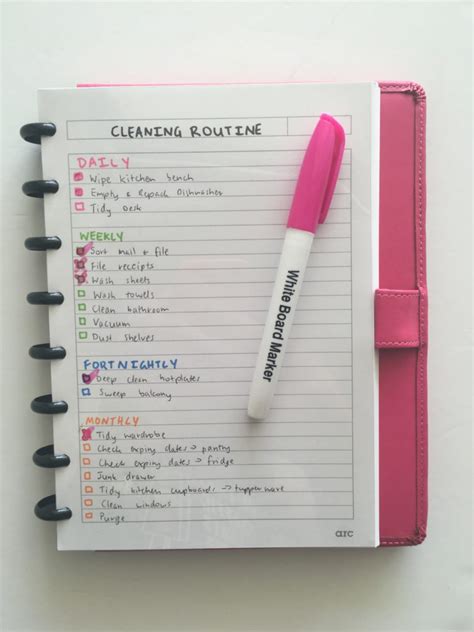 CLEANING ROUTINE
DAILY
Wipe kitchen bench
Empty & Repack Dishwasher
Tidy Desk
WEEKLY
Sort mail & file
File receipts
Wash sheets
Wash towels
Clean bathroom
Vacuum
Dust shelves
FORTNIGHTLY
Deep clean hotplates
Sweep balcony
MONTHLY
Tidy wardrobe
Check expiring dates → pantry
Check expiring dates → fridge
Junk drawer
Tidy kitchen cupboards → tupperware
Clean windows
Purge
arc
White Board Marker